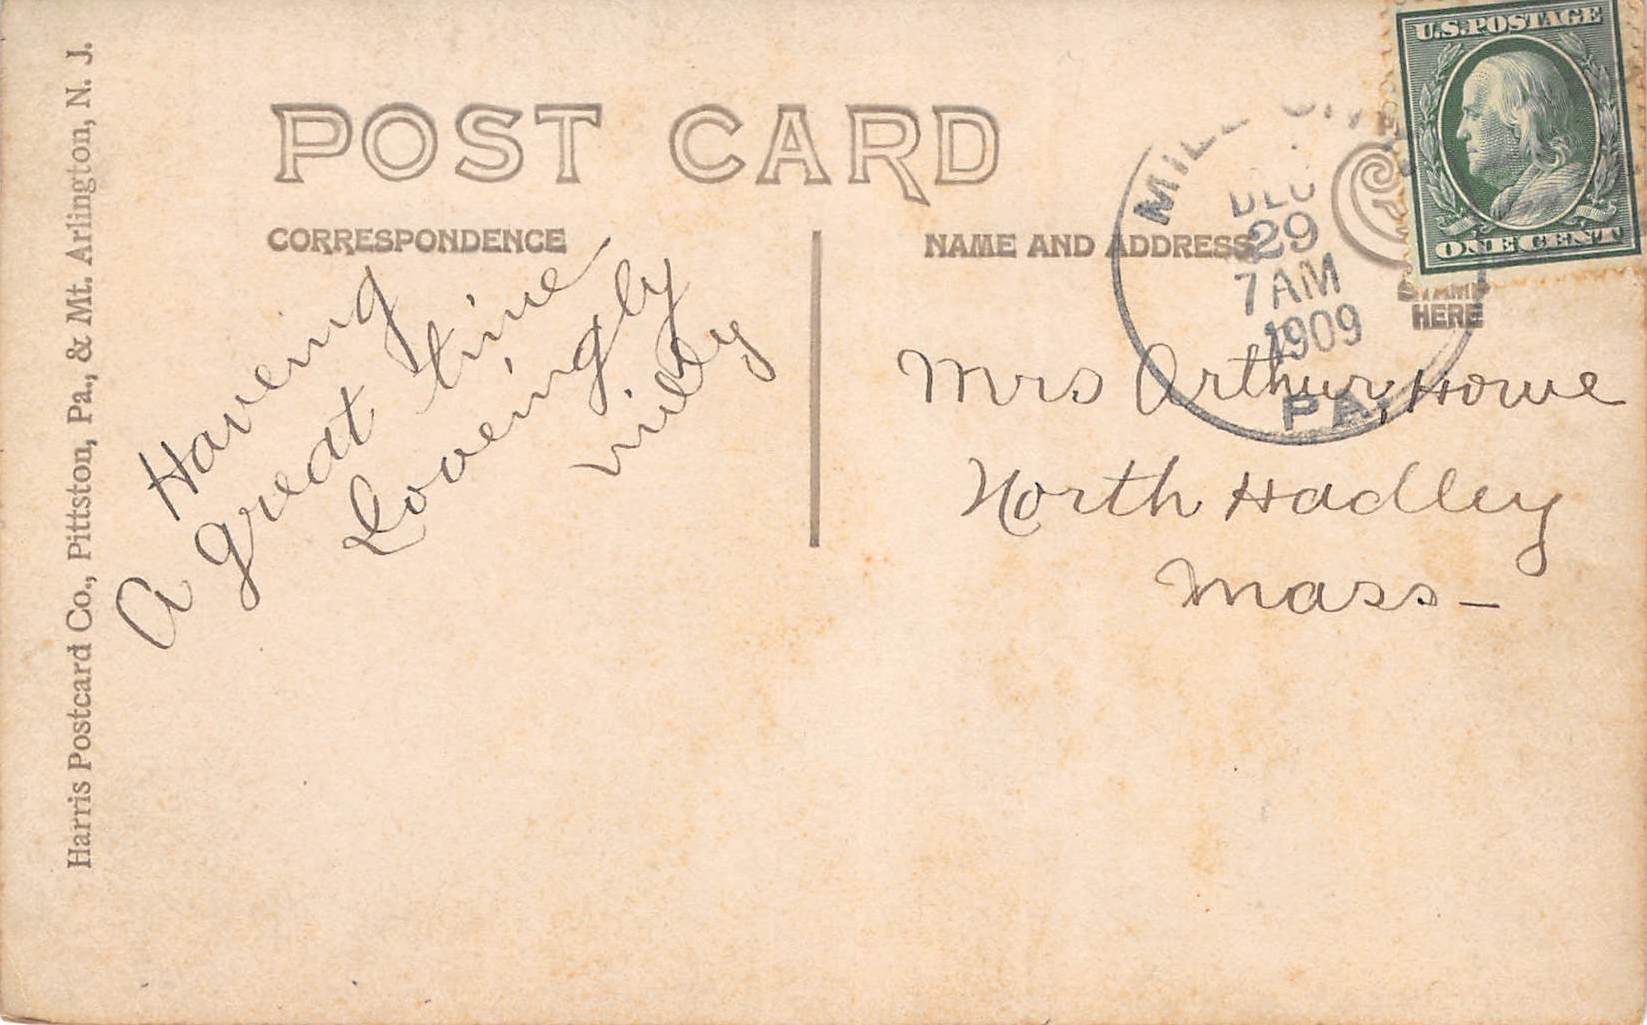 Harris Postcard Co., Pittston, Pa., & Mt. Arlington, N. J.
POST CARD
CORRESPONDENCE
NAME AND ADDRESS
U.S. POSTAGE
ONE CENT
STAMP
HERE
MILL
DEC
29
7 AM
1909
PA.
Having
A great time
Loveingly
Mrs Arthur Howe
North Hadley
Mass-